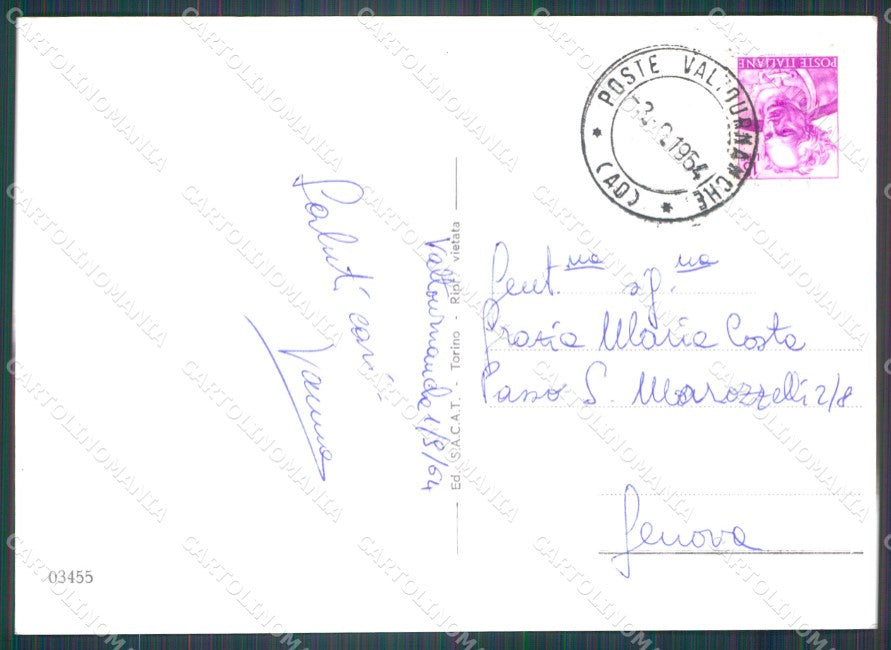 POSTE ITALIANE
* POSTE VALTOURNANCHE * (AO)
1964
Saluti cari
Valtournanche 1/8/64
Ed. S.A.C.A.T. - Torino - Ripr. vietata
Gent.ma sg.na
Grazia Maria Costa
Passo S. 2/8
Genova
03455
CARTOLINOMANIA